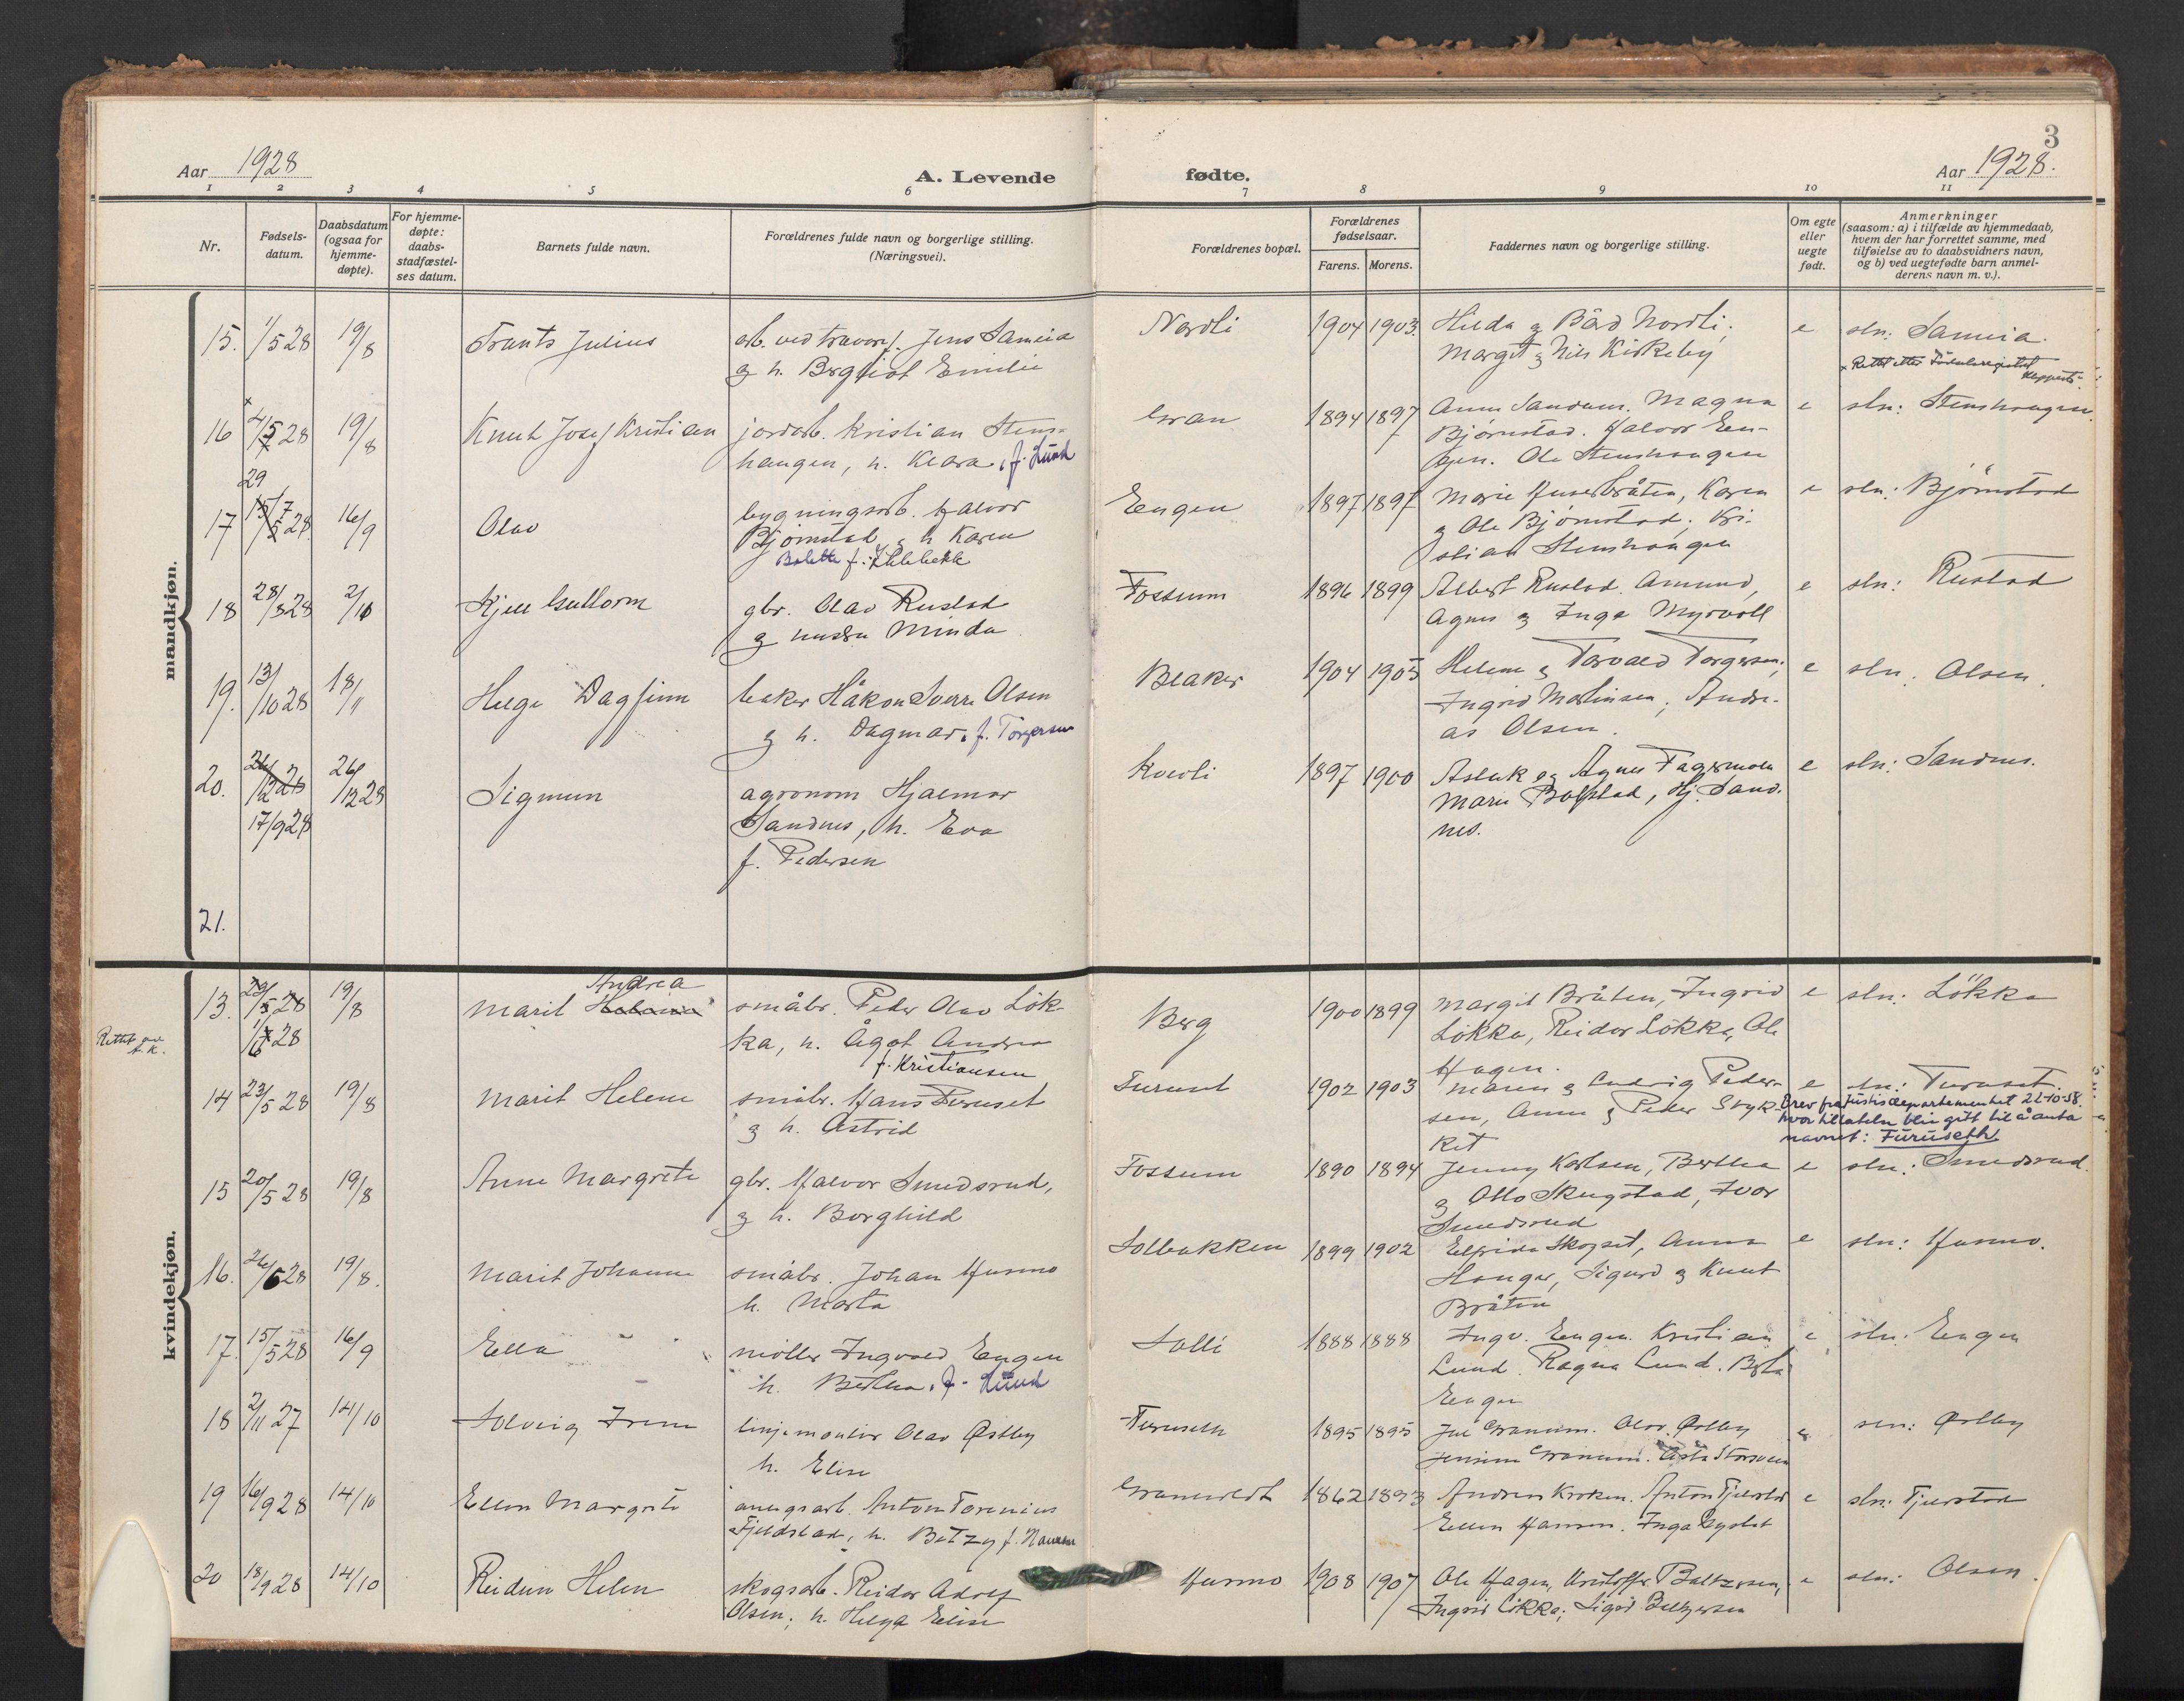 3
Aar 1928
A. Levende
fødte.
Aar 1928.
1 2 3 4 5 6 7 8 9 10 11
Nr.
Fødsels-
datum.
Daabsdatum
(ogsaa for
hjemme-
døpte).
For hjemme-
døpte:
daabs-
stadfæstel-
ses datum.
Barnets fulde navn.
Forældrenes fulde navn og borgerlige stilling.
(Næringsvei).
Forældrenes bopæl.
Forældrenes
fødselsaar.
Farens. Morens.
Faddernes navn og borgerlige stilling.
Om egte
eller
uegte
født.
Anmerkninger
(saasom: a) i tilfælde av hjemmedaab,
hvem der har forrettet samme, med
tilføielse av to daabsvidners navn,
og b) ved uegtefødte barn anmel-
derens navn m. v.).
mandkjøn.
15. 1/5 28 19/8 Frants Julius arb. ved travarf. Jens Sameia Nordli 1904 1903 Hilda og Bård Nordli, e sln: Sameia.
g h. Bergliot Emilie Margit g Nils Kirkeby
x Rettet etter Fødselsregistret
16 4/5 28 19/8 Knut Josef Kristian jordarb. Kristian Stens- Gran 1894 1897 Anna Sandum. Magna e sln: Stenshaugen
haugen, h. Klara, f. Lund Bjørnstad. Halvor En-
gen. Ole Stenshaugen
29
17 15/7 5 28 16/9 Olav bygningsarb. Halvor Engen 1897 1897 Marie Huserbråten, Karen e sln: Bjørnstad
Bjørnstad g h Karen g Ole Bjørnstad; Kri-
Bolette f. stian Stenshaugen
18 28/8 28 2/10 Kjell Gullorm gbr. Olav Rustad Fossum 1896 1899 Albert Rustad. Amund, e sln: Rustad
g hustru Minda Agnes g Inga Myrvoll
19. 13/10 28 18/11 Helge Dagfinn baker Håkon Sverre Olsen Blaker 1904 1905 Helene g Torvald Torgersen, e sln. Olsen.
g h. Dagmar, f. Torgersen Ingrid Martinsen, Andre-
as Olsen.
20. 26/12 28 26/12 28 Sigmun agronom Hjalmar Kvevli 1897 1900 Aslak og Agnes Fagermoen e sln: Sandnes.
17/9 28 Sandnes, h. Eva Marie Bolstad, Hj. Sand-
f. Pedersen nes.
21.
kvindekjøn.
Andrea
13. 29/5 28 19/8 Marit Helene småbr. Peder Olav Løk- Berg 1900 1899 Margit Bråten, Ingrid e sln: Løkka
Rettet av
1/6 28 ka, h. Ågot Andrea Løkka, Reidar Løkka, Ole
f. Kristiansen Hagen.
14 23/5 28 19/8 Marit Helene småbr. Hans Furuset Furuset 1902 1903 Maren g Ludvig Peder- e sln: Furuset.
g h. Astrid sen, Anna g Peder Stryk- Brev fra Justisdepartementet 22-10-58.
ket hvor tillatelse blir gitt til å anta
navnet: Furuseth
15 20/5 28 19/8 Anne Margrete gbr. Halvor Smedsrud, Fossum 1890 1894 Jenny Karlsen, Bertha e sln: Smedsrud.
g h. Borghild g Otto Skugstad, Ivar
Smedsrud
16. 26/6 28 19/8. Marit Johanne småbr. Johan Husmo Solbakken 1899 1902 Elfrida Skogset, Anna e sln: Husmo.
h. Marta Hauger, Sigurd g Knut
Bråten
17. 15/5 28 16/9 Ella møller Ingvald Engen Solli 1888 1888 Ingv. Engen. Kristian e sln: Engen
h. Bertha, f. Lund Lund. Ragna Lund. Berta
Engen
18 2/11 27 14/10 Solveig Irene linjemontør Olav Østby Furuseth 1895 1895 Granum. Olav Østby e sln: Østby
h. Elise Granum.
19 16/9 28 14/10 Ellen Margrete anlegsarb. Anton Torenius 1862 1893 Andreas Kroken. Anton Fjelstad e sln: Fjelstad
Fjeldstad, h. Betzy f. Hansen Ellen Hansen. Inga
20 18/9 28 14/10 Reidun Helen skogsarb. Reidar Adolf Husmo 1908 1907 Ole Hagen, Kristoffer Baltzersen, e sln: Olsen.
Olsen; h. Helga Elise Ingrid Løkka; Sigrid Baltzersen